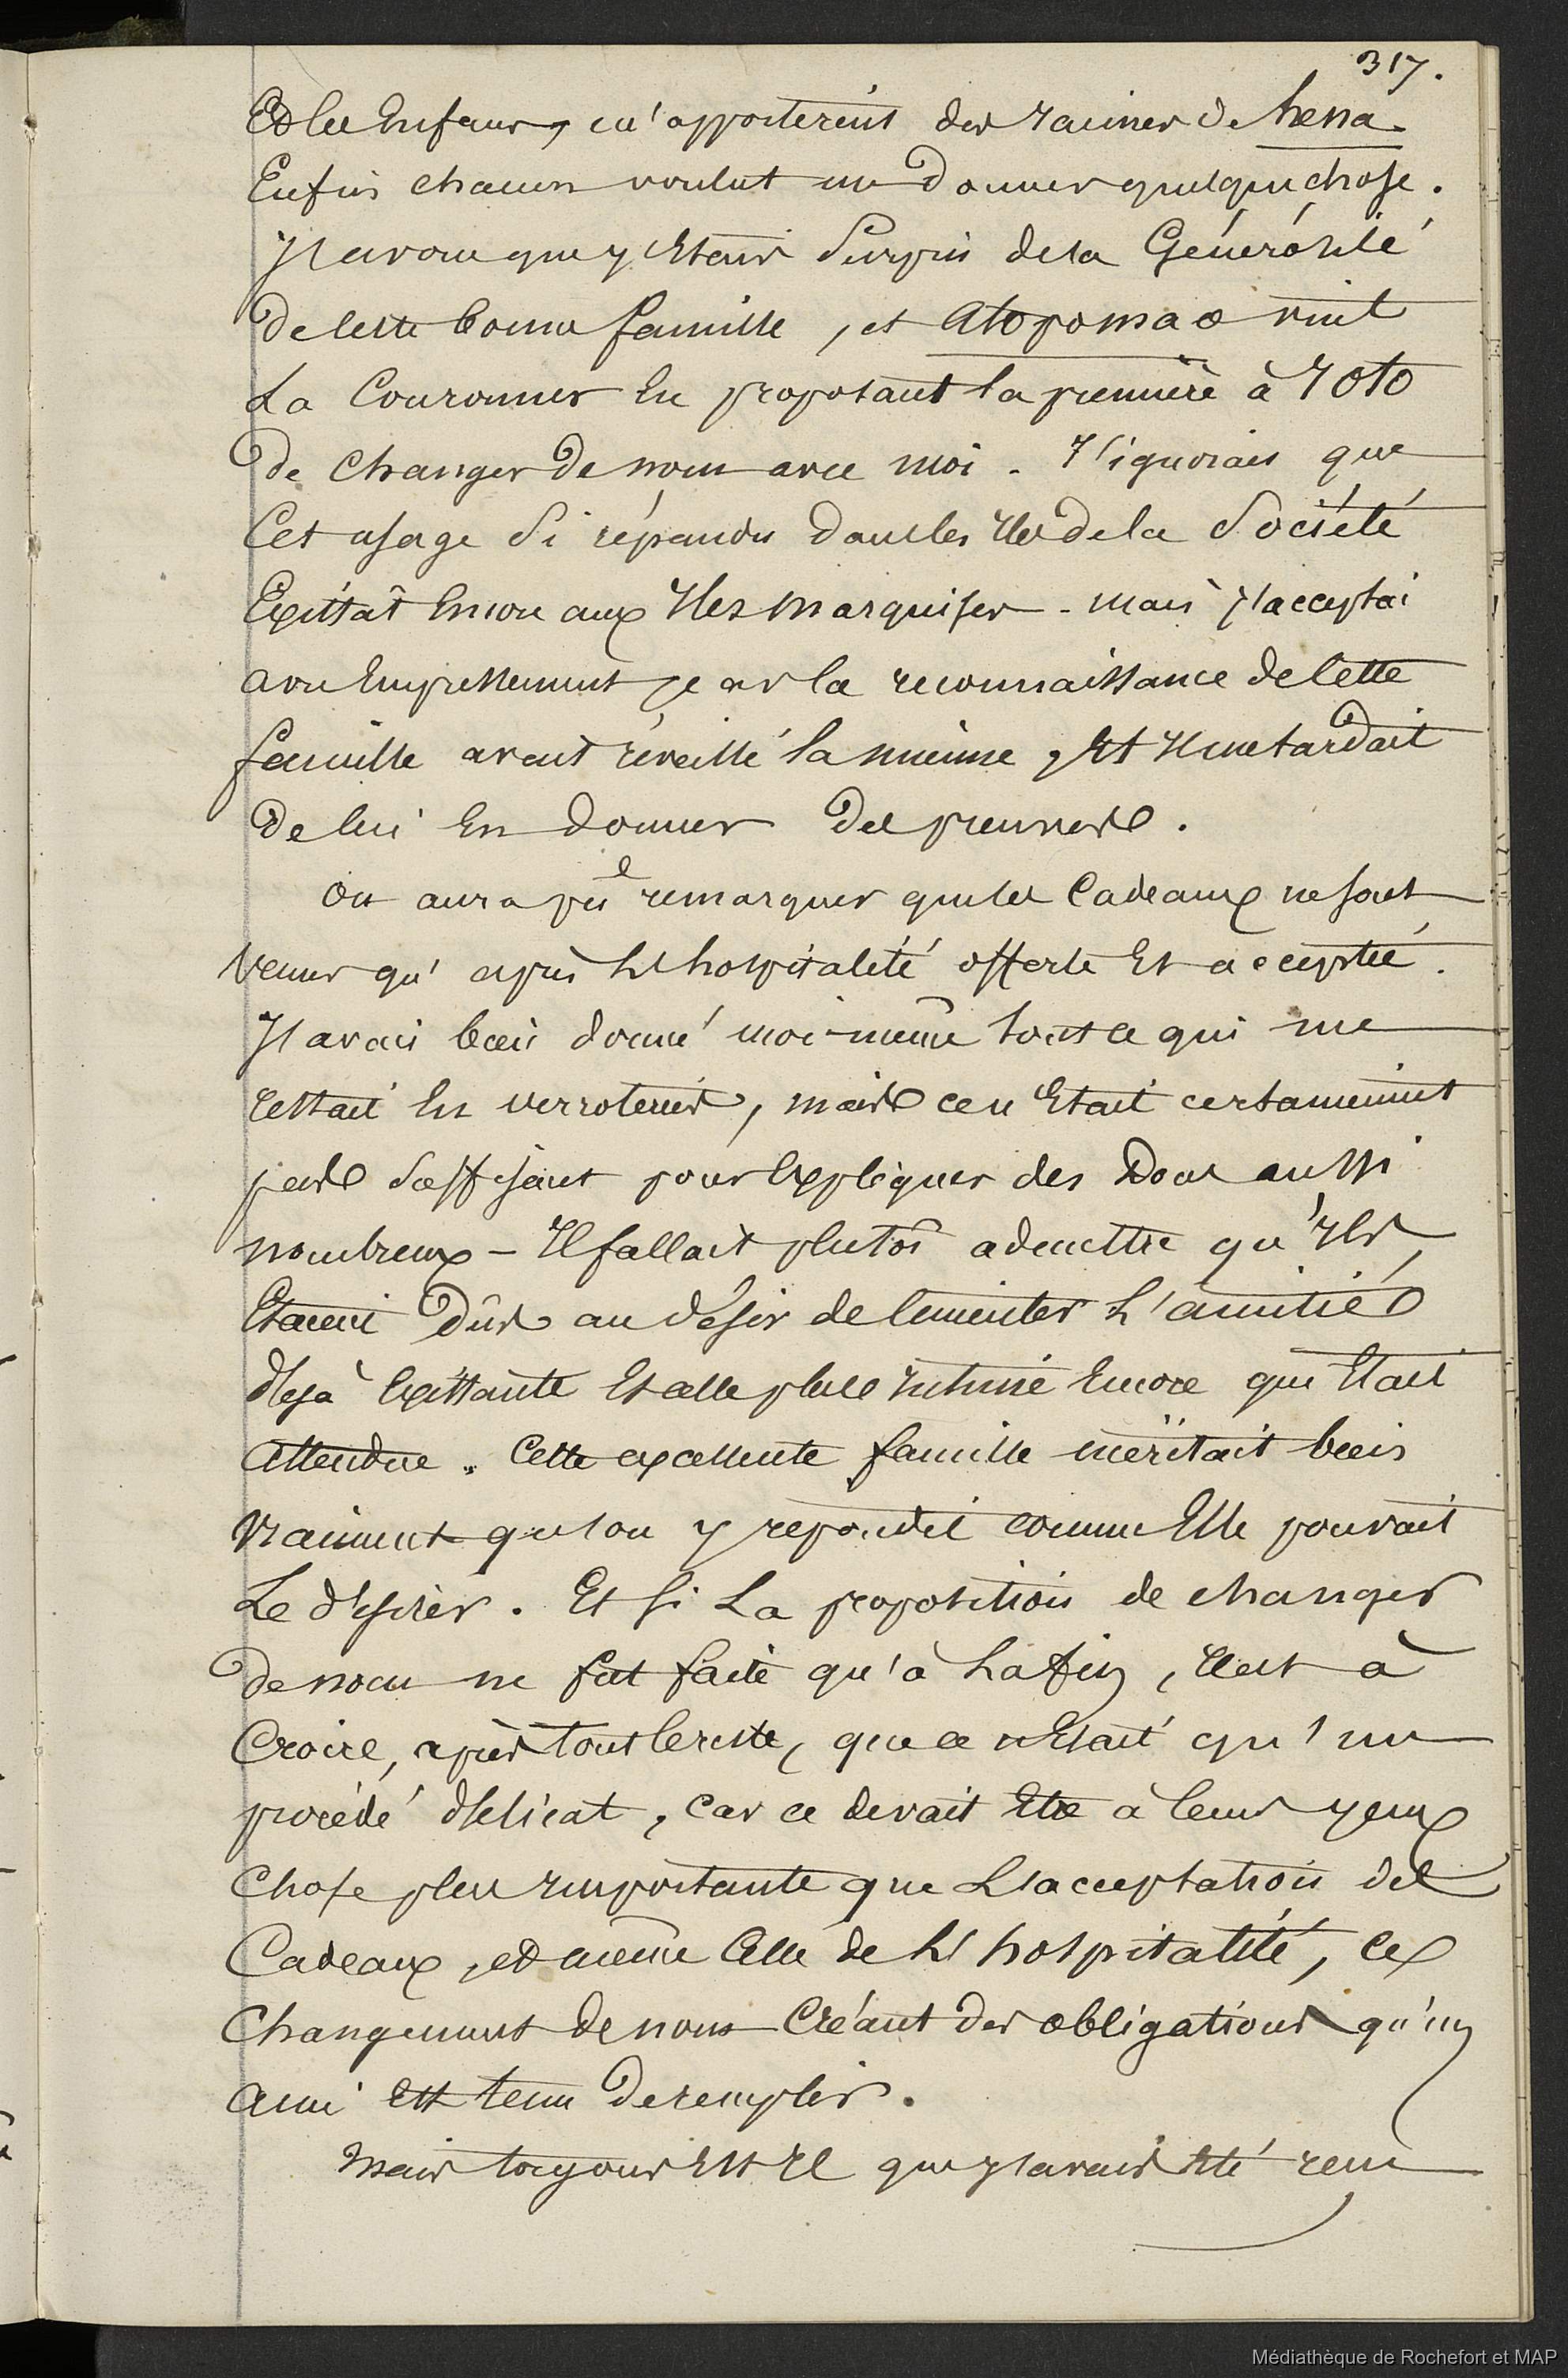 317.
Et les Enfans, m'apportèrent des racines de hena.
Enfin chacun voulut me donner quelque chose.
J'avoue que j'Etais Surpris de la Générosité
de cette bonne famille, et Atopomao vint
La Couronner En proposant la première à Toto
de Changer de nom avec moi - J'ignorais que
Cet usage Si répandu dans les Iles de la Société
Existât Encore aux Iles Marquises - mais j'acceptai
avec Empressement car la reconnaissance de Cette
famille avait réveillé la mienne, Et Il me tardait
de lui En donner des preuves.
On aura pu remarquer que les Cadeaux ne sont
venus qu'après L'hospitalité offerte Et acceptée.
J'avais bien donné moi-même tout ce qui me
restait En verroteries, mais ce n'Etait certainement
pas Suffisant pour Expliquer des Dons aussi
nombreux - Il fallait plutôt admettre qu'Ils
Etaient Dûs au désir de Cimenter L'amitié
déjà Existante Et celle plus Intime Encore qui Etait
Attendue. Cette excellente famille méritait bien
vraiment qu'on y répondit comme Elle pouvait
Le désirer. Et Si La proposition de changer
de nom ne fut faite qu'à La fin, Il est à
Croire, après tout le reste, que ce n'Etait qu'un
procédé délicat, Car ce devait Etre à leurs yeux
Chose plus Importante que L'acceptation des
Cadeaux, et même Celle de L'hospitalité, Ce
Changement de nom Créant des obligations qu'un
Ami Est tenu de remplir.
Mais toujours Est Il que j'avais Eté reçu